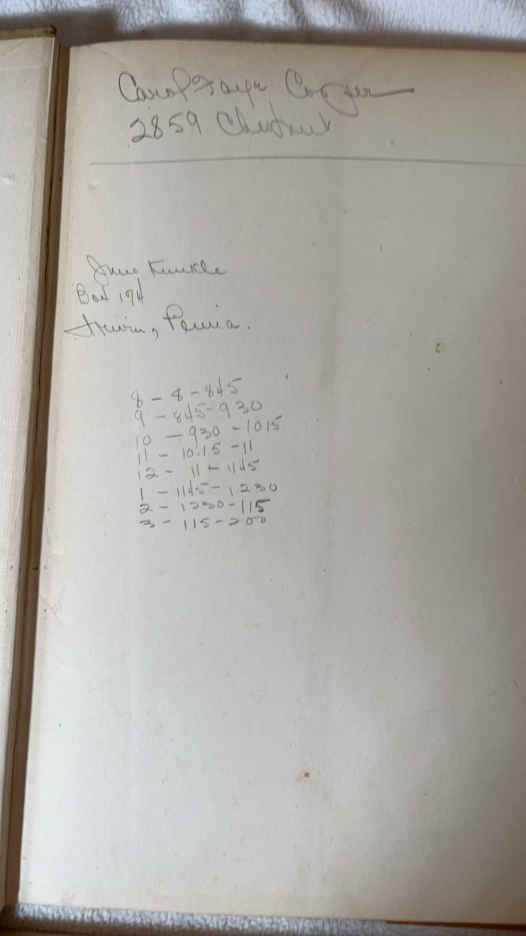 Carol Faye Cooper
2859 Chestnut
June Kunkle
Box 174
Irwin, Penna.
8 - 8 - 845
9 - 845 - 930
10 - 930 - 1015
11 - 10.15 - 11
12 - 11 - 1145
1 - 1145 - 1230
2 - 1230 - 115
3 - 115 - 200